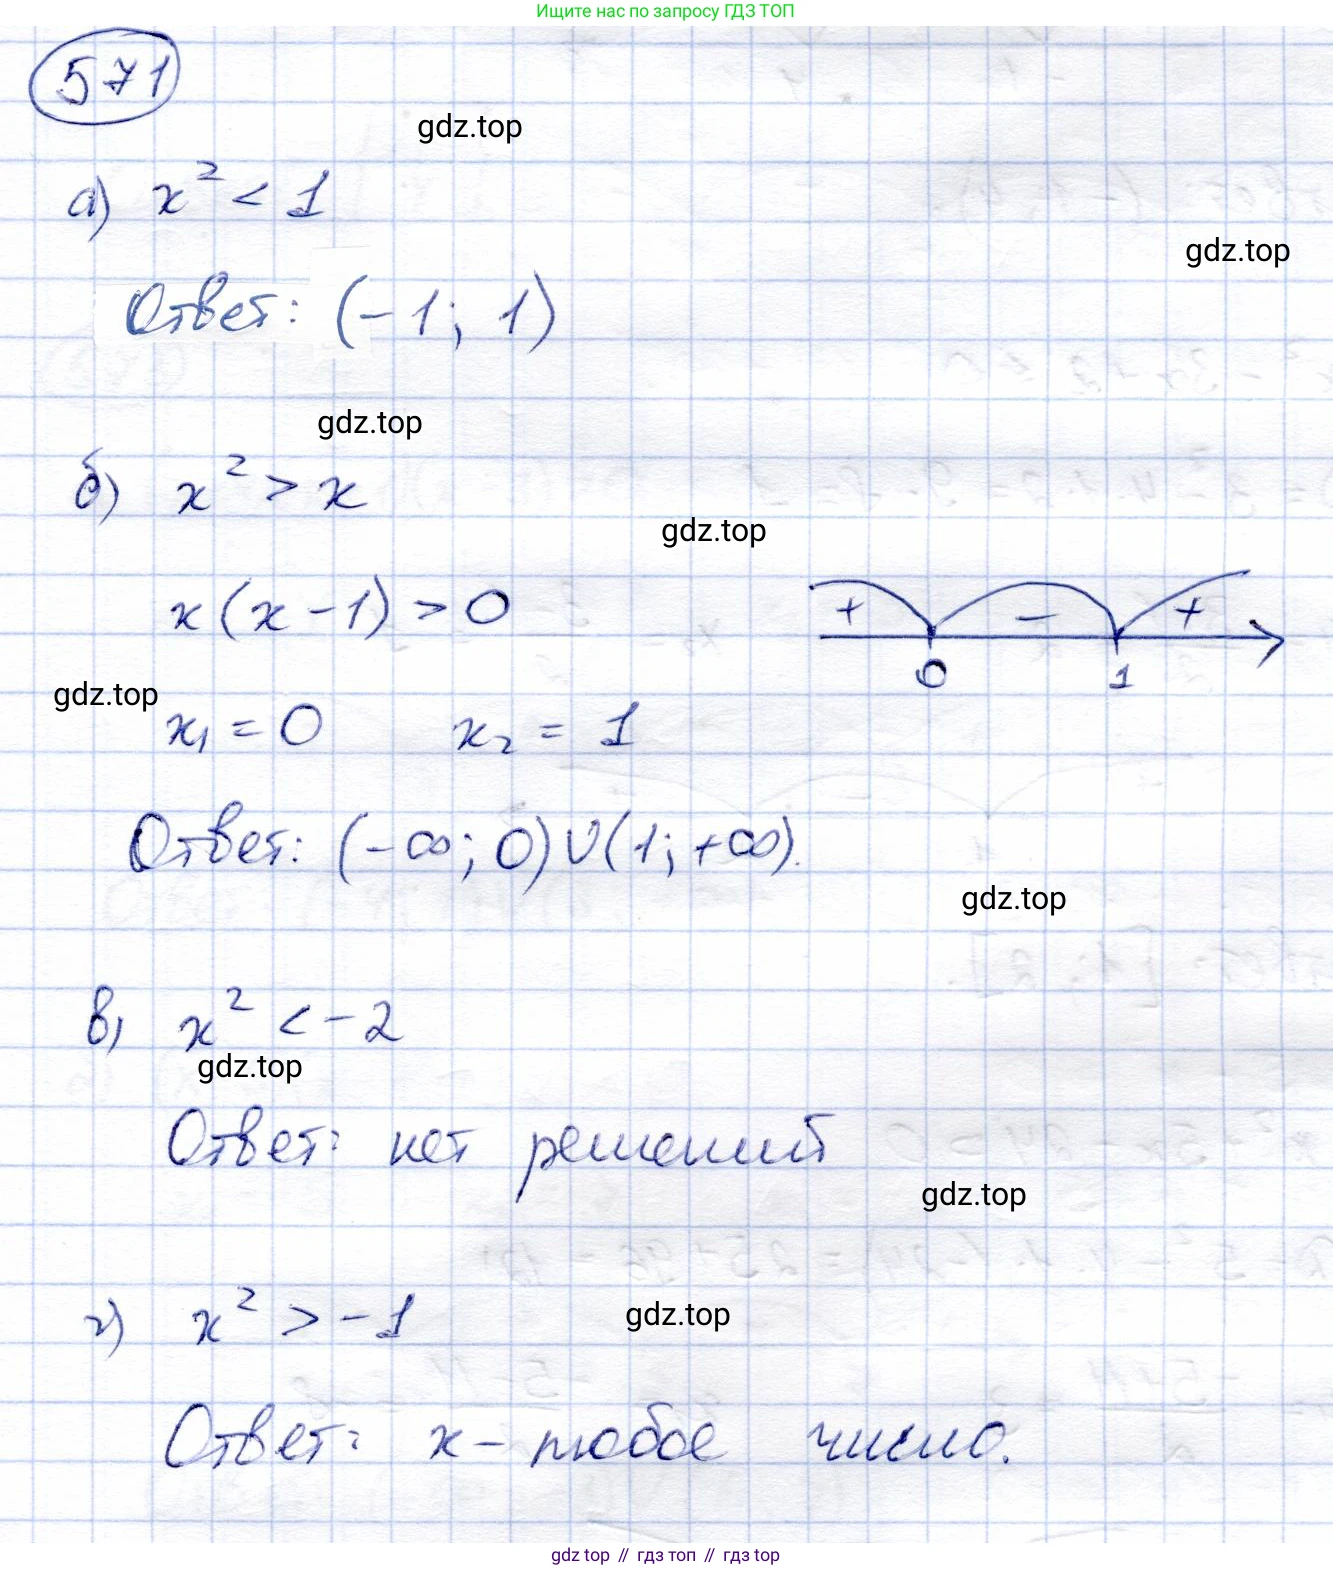 Ищите нас по запросу ГДЗ ТОП
571
gdz.top
а) x² < 1
gdz.top
Ответ: (-1; 1)
gdz.top
б) x² > x
gdz.top
x(x-1) > 0
+ - +
0 1
gdz.top
x₁ = 0 x₂ = 1
Ответ: (-∞; 0)∪(1; +∞).
gdz.top
в) x² < -2
gdz.top
Ответ: нет решений
gdz.top
г) x² > -1
gdz.top
Ответ: x - любое число.
gdz top // гдз топ // гдз top